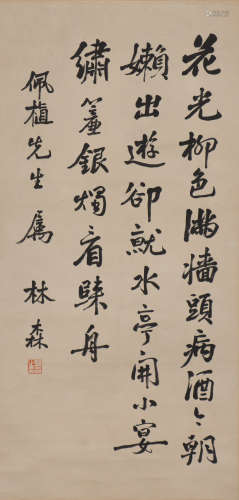 花光柳色滿墻頭病酒今朝
嬾出遊卻就水亭開小宴
繡簾銀燭看歸舟
佩植先生属
林森